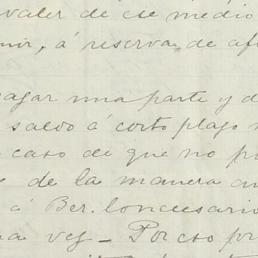 valer de ese medio
nir, á reserva de
agar una parte y d
saldo á corto plazo
caso de que no p
de la manera
á Ber. loncesario
na vez – Por eso pr